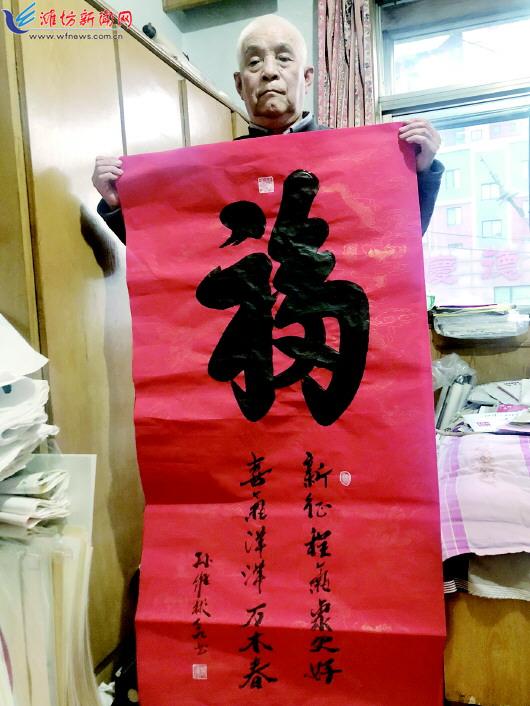 潍坊新闻网
www.wfnews.com.cn
福
新征程氣象更好
喜氣洋洋万木春
孙维